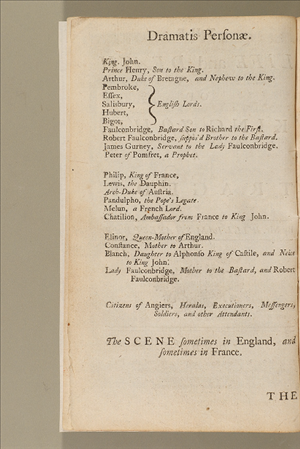 Dramatis Personæ.
King John.
Prince Henry, Son to the King.
Arthur, Duke of Bretagne, and Nephew to the King.
Pembroke,
Essex,
Salisbury, English Lords.
Hubert,
Bigot,
Faulconbridge, Bastard Son to Richard the First.
Robert Faulconbridge, suppos'd Brother to the Bastard.
James Gurney, Servant to the Lady Faulconbridge.
Peter of Pomfret, a Prophet.
Philip, King of France,
Lewis, the Dauphin.
Arch-Duke of Austria.
Pandulpho, the Pope's Legate.
Melun, a French Lord.
Chatilion, Ambassador from France to King John.
Elinor, Queen-Mother of England.
Constance, Mother to Arthur.
Blanch, Daughter to Alphonso King of Castile, and Neice
to King John.
Lady Faulconbridge, Mother to the Bastard, and Robert
Faulconbridge.
Citizens of Angiers, Heralds, Executioners, Messengers,
Soldiers, and other Attendants.
The SCENE sometimes in England, and
sometimes in France.
THE